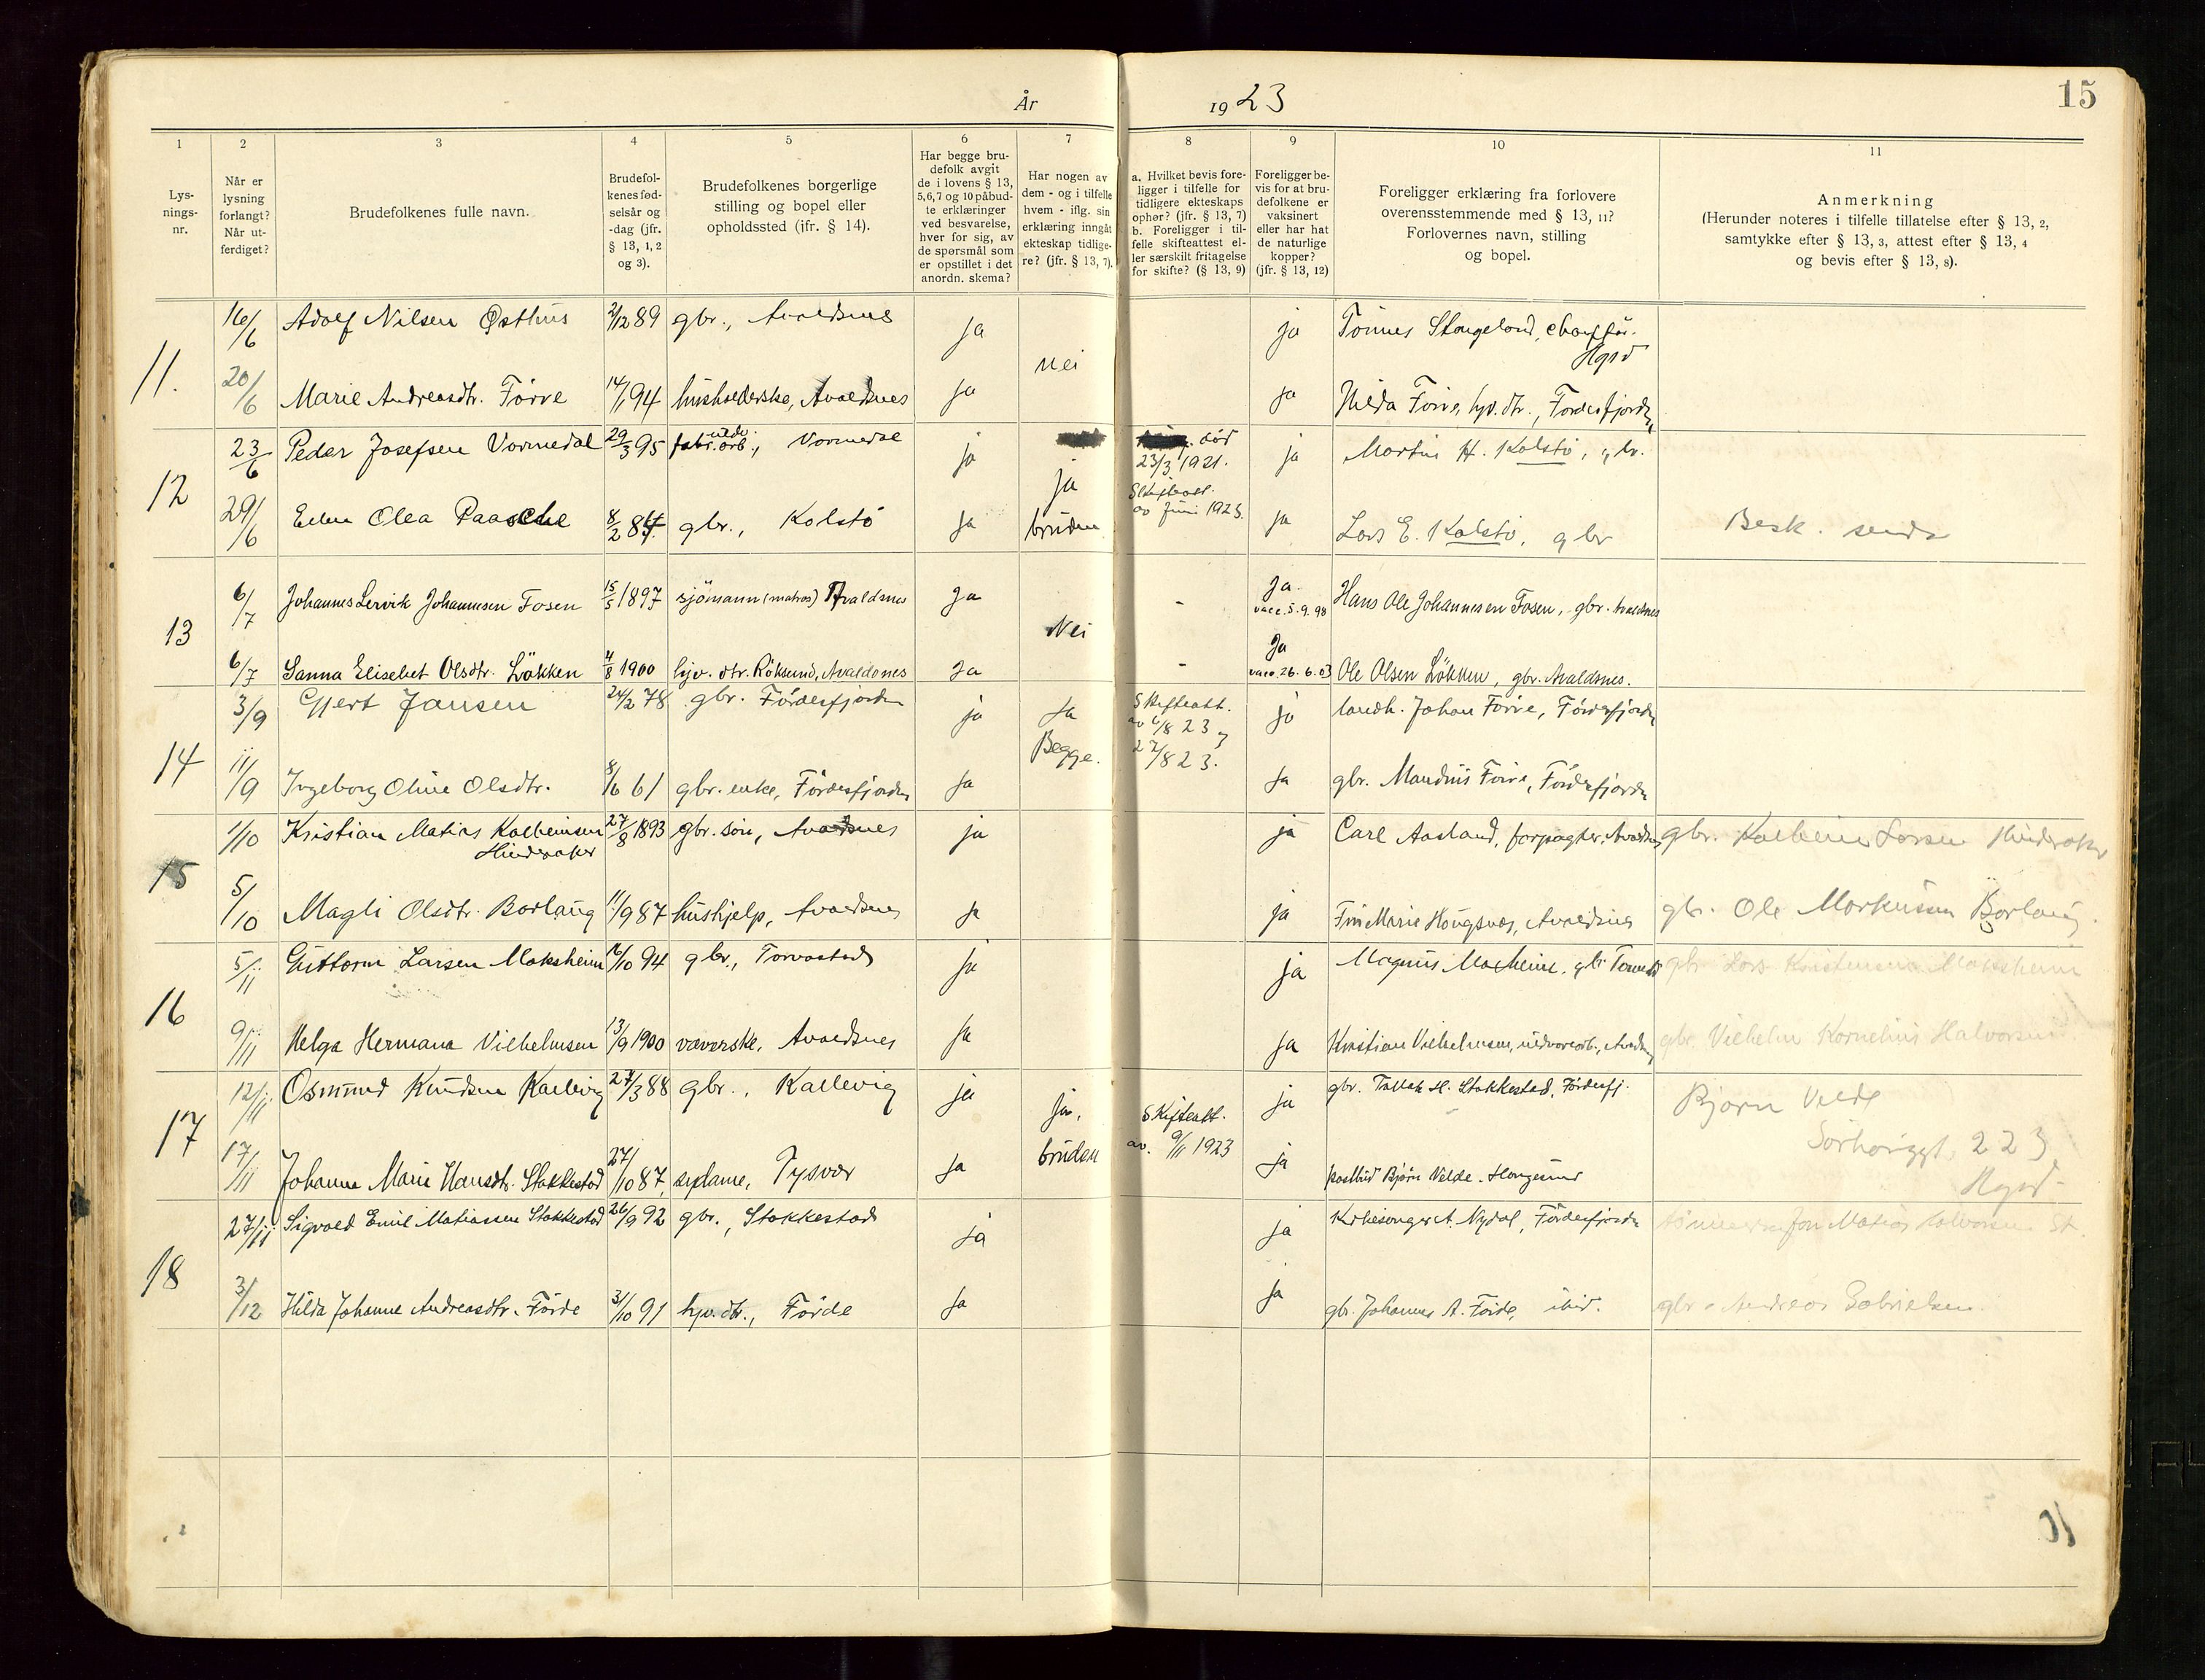 År 1923
15
1
2
3
4
5
6
7
8
9
10
11
Lys-
nings-
nr.
Når er
lysning
forlangt?
Når ut-
ferdiget?
Brudefolkenes fulle navn.
Brudefol-
kenes fød-
selsår og
-dag (jfr.
§ 13, 1, 2
og 3).
Brudefolkenes borgerlige
stilling og bopel eller
opholdssted (ifr. § 14).
Har begge bru-
defolk avgit
de i lovens § 13,
5,6,7 og 10 påbud-
te erklæringer
ved besvarelse,
hver for sig, av
de spørsmål som
er opstillet i det
anordn. skema?
Har nogen av
dem - og i tilfelle
hvem - iflg. sin
erklæring inngåt
ekteskap tidlige-
re? (jfr. § 13, 7).
a. Hvilket bevis fore-
ligger i tilfelle for
tidligere ekteskaps
ophør? (jfr. § 13, 7)
b. Foreligger i til-
felle skifteattest el-
ler særskilt fritagelse
for skifte? (§ 13, 9)
Foreligger be-
vis for at bru-
defolkene er
vaksinert
eller har hat
de naturlige
kopper?
(jfr. § 13, 12)
Foreligger erklæring fra forlovere
overensstemmende med § 13, 11?
Forlovernes navn, stilling
og bopel.
Anmerkning
(Herunder noteres i tilfelle tillatelse efter § 13, 2,
samtykke efter § 13, 3, attest efter § 13, 4
og bevis efter § 13, 8).
11.
16/6 Adolf Nilsen Østhus 2/12 89 gbr., Avaldsnes ja ja Tönnes Stangeland, chauffør.
Hgsd
nei
20/6 Marie Andreasdtr. Förre 14/1 94 husholderske, Avaldsnes ja ja Hilda Förre, hjv. dtr., Fördesfjorden
12
23/6 Peder Josefsen Vormedal 29/3 95 fabr. arb., Vormedal ja ja død 23/3 1921. ja Martin H. Kolstö, gbr.
Skifteatt.
av Juni 1923.
29/6 Ellen Olea Paasche 8/2 84 gbr., Kolstö ja bruden ja Lars E. Kolstö, gbr Besk. sendt
13
6/7 Johannes Lervik Johannesen Fosen 15/5 1897 sjömann (matros) Avaldsnes Ja - Ja. vacc. 5.9.98 Hans Ole Johannesen Fosen, gbr. Avaldsnes
Nei
6/7 Sanna Elisebet Olsdtr. Lökken 4/8 1900 hjv. dtr. Röksund, Avaldsnes Ja - Ja vacc. 26.6.03 Ole Olsen Lökken, gbr. Avaldsnes.
14
3/9 Gjert Jansen 24/2 78 gbr. Fördesfjorden ja Ja Skifteatt. ja landh. Johan Förre, Fördesfjorden
Begge. av 6/8 23 og
27/8 23.
11/9 Ingeborg Oline Olsdtr. 8/6 61 gbr. enke, Fördesfjorden ja ja gbr. Maudius Förre, Fördesfjorden
15
1/10 Kristian Matias Kolbeinsen 27/8 1893 gbr. sön, Avaldsnes ja ja Carl Aasland, forpagter, Avaldsnes gbr. Kolbein Larsen Hinderaker
Hinderaker
5/10 Magli Olsdtr. Borlaug 11/9 87 hushjelp, Avaldsnes ja ja Fru Marie Haugsnes, Avaldsnes gbr. Ole Markussen Borlaug.
16
5/11 Guttorm Larsen Maksheim 16/10 94 gbr., Torvastad ja ja Magnus Maxheim, gbr. Torvastad gbr. Lars Kristensen Maksheim
9/11 Helga Hermana Vilhelmsen 13/9 1900 væverske, Avaldsnes ja ja Kristian Vilhelmsen, uldvarearb., Avaldsnes gbr. Vilhelm Kornelius Halvorsen
17
12/11 Osmund Knudsen Kallevig 27/3 88 gbr., Kallevig ja ja, Skifteatt. ja gbr. Tallak H. Stakkestad, Fördesfj. Bjorn Velde
Sørhauggt. 223
Hgsd
17/11 Johanna Marie Hansdtr. Stakkestad 27/10 87 sydame, Tysvær ja bruden av. 9/11 1923 ja postbud Björn Velde. Haugesund
18
27/11 Sigvald Emil Matiassen Stakkestad 26/9 92 gbr., Stakkestad ja ja Kirkesanger A. Nydal, Fördesfjorden
3/12 Hilda Johanne Andreasdtr. Förde 3/10 91 hjv. dtr., Förde ja ja gbr. Johannes A. Förde, ibid. gbr. Andreas Gabrielsen.